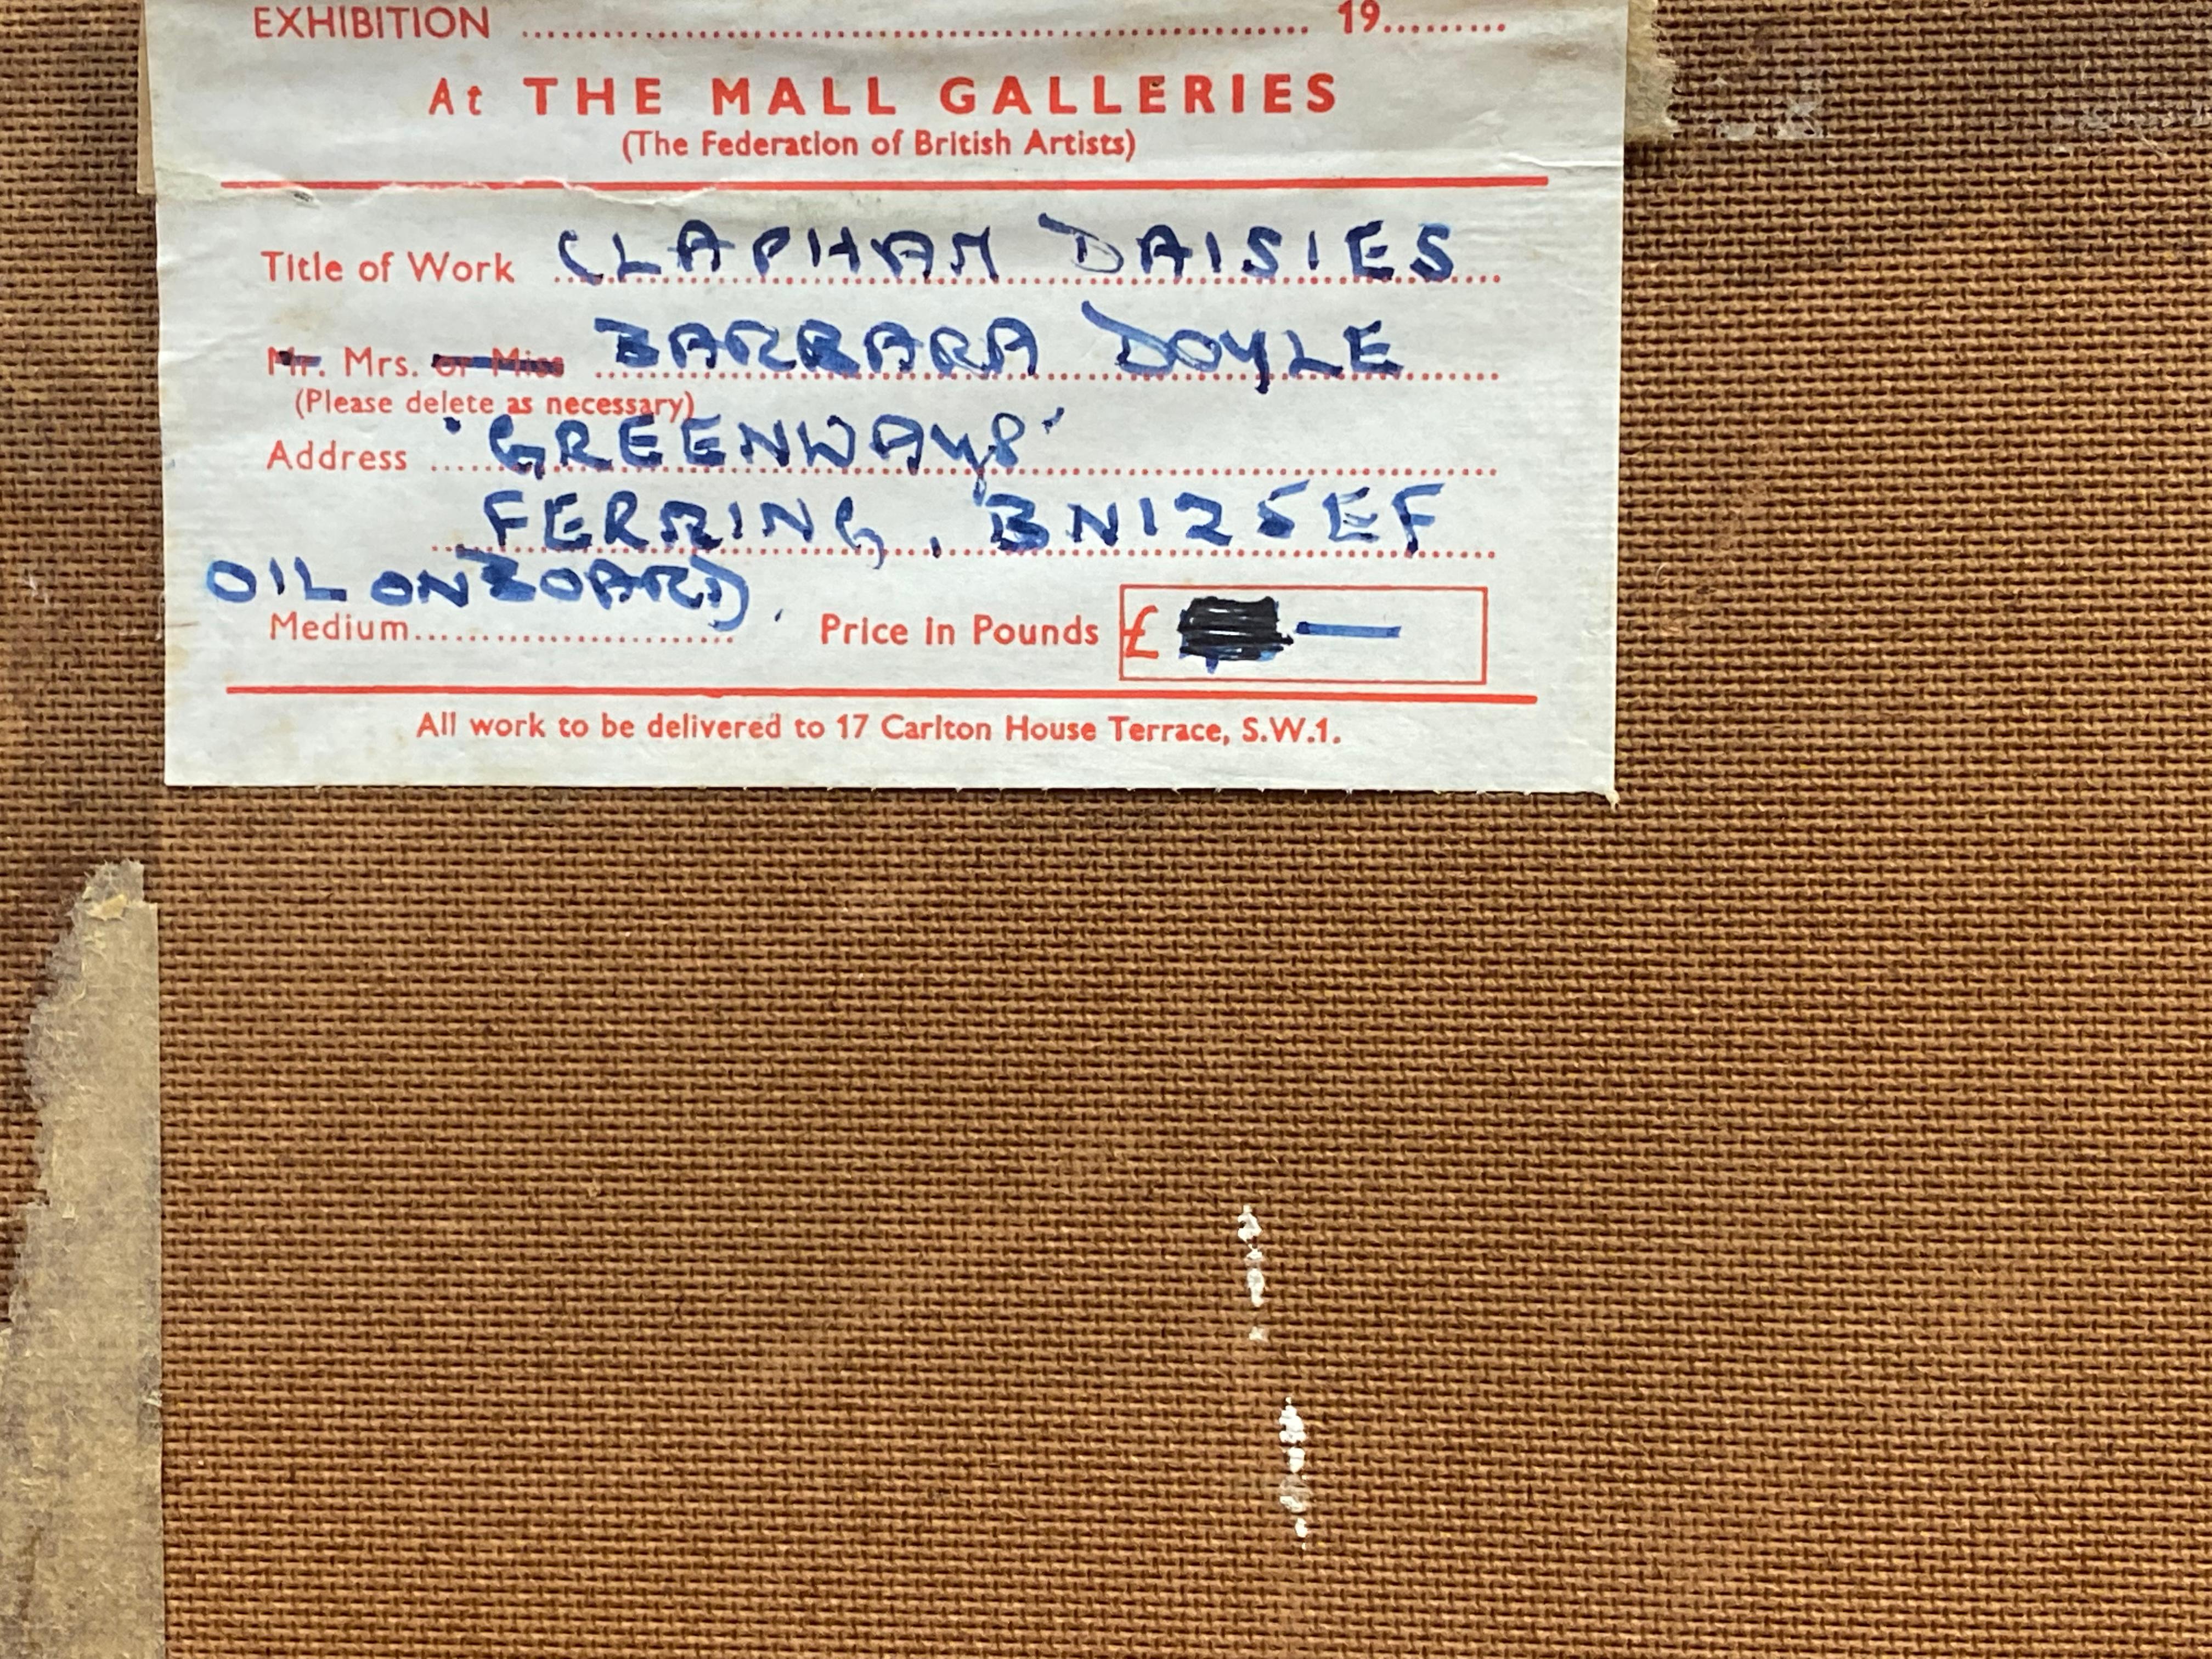 EXHIBITION ........................................ 19.........
At THE MALL GALLERIES
(The Federation of British Artists)
Title of Work CLAPHAM DAISIES
Mr. Mrs. or Miss BARBARA DOYLE
(Please delete as necessary)
Address 'GREENWAYS'
FERRING, BN12 5EF
OIL ON BOARD.
Medium........................ Price in Pounds £ —
All work to be delivered to 17 Carlton House Terrace, S.W.1.